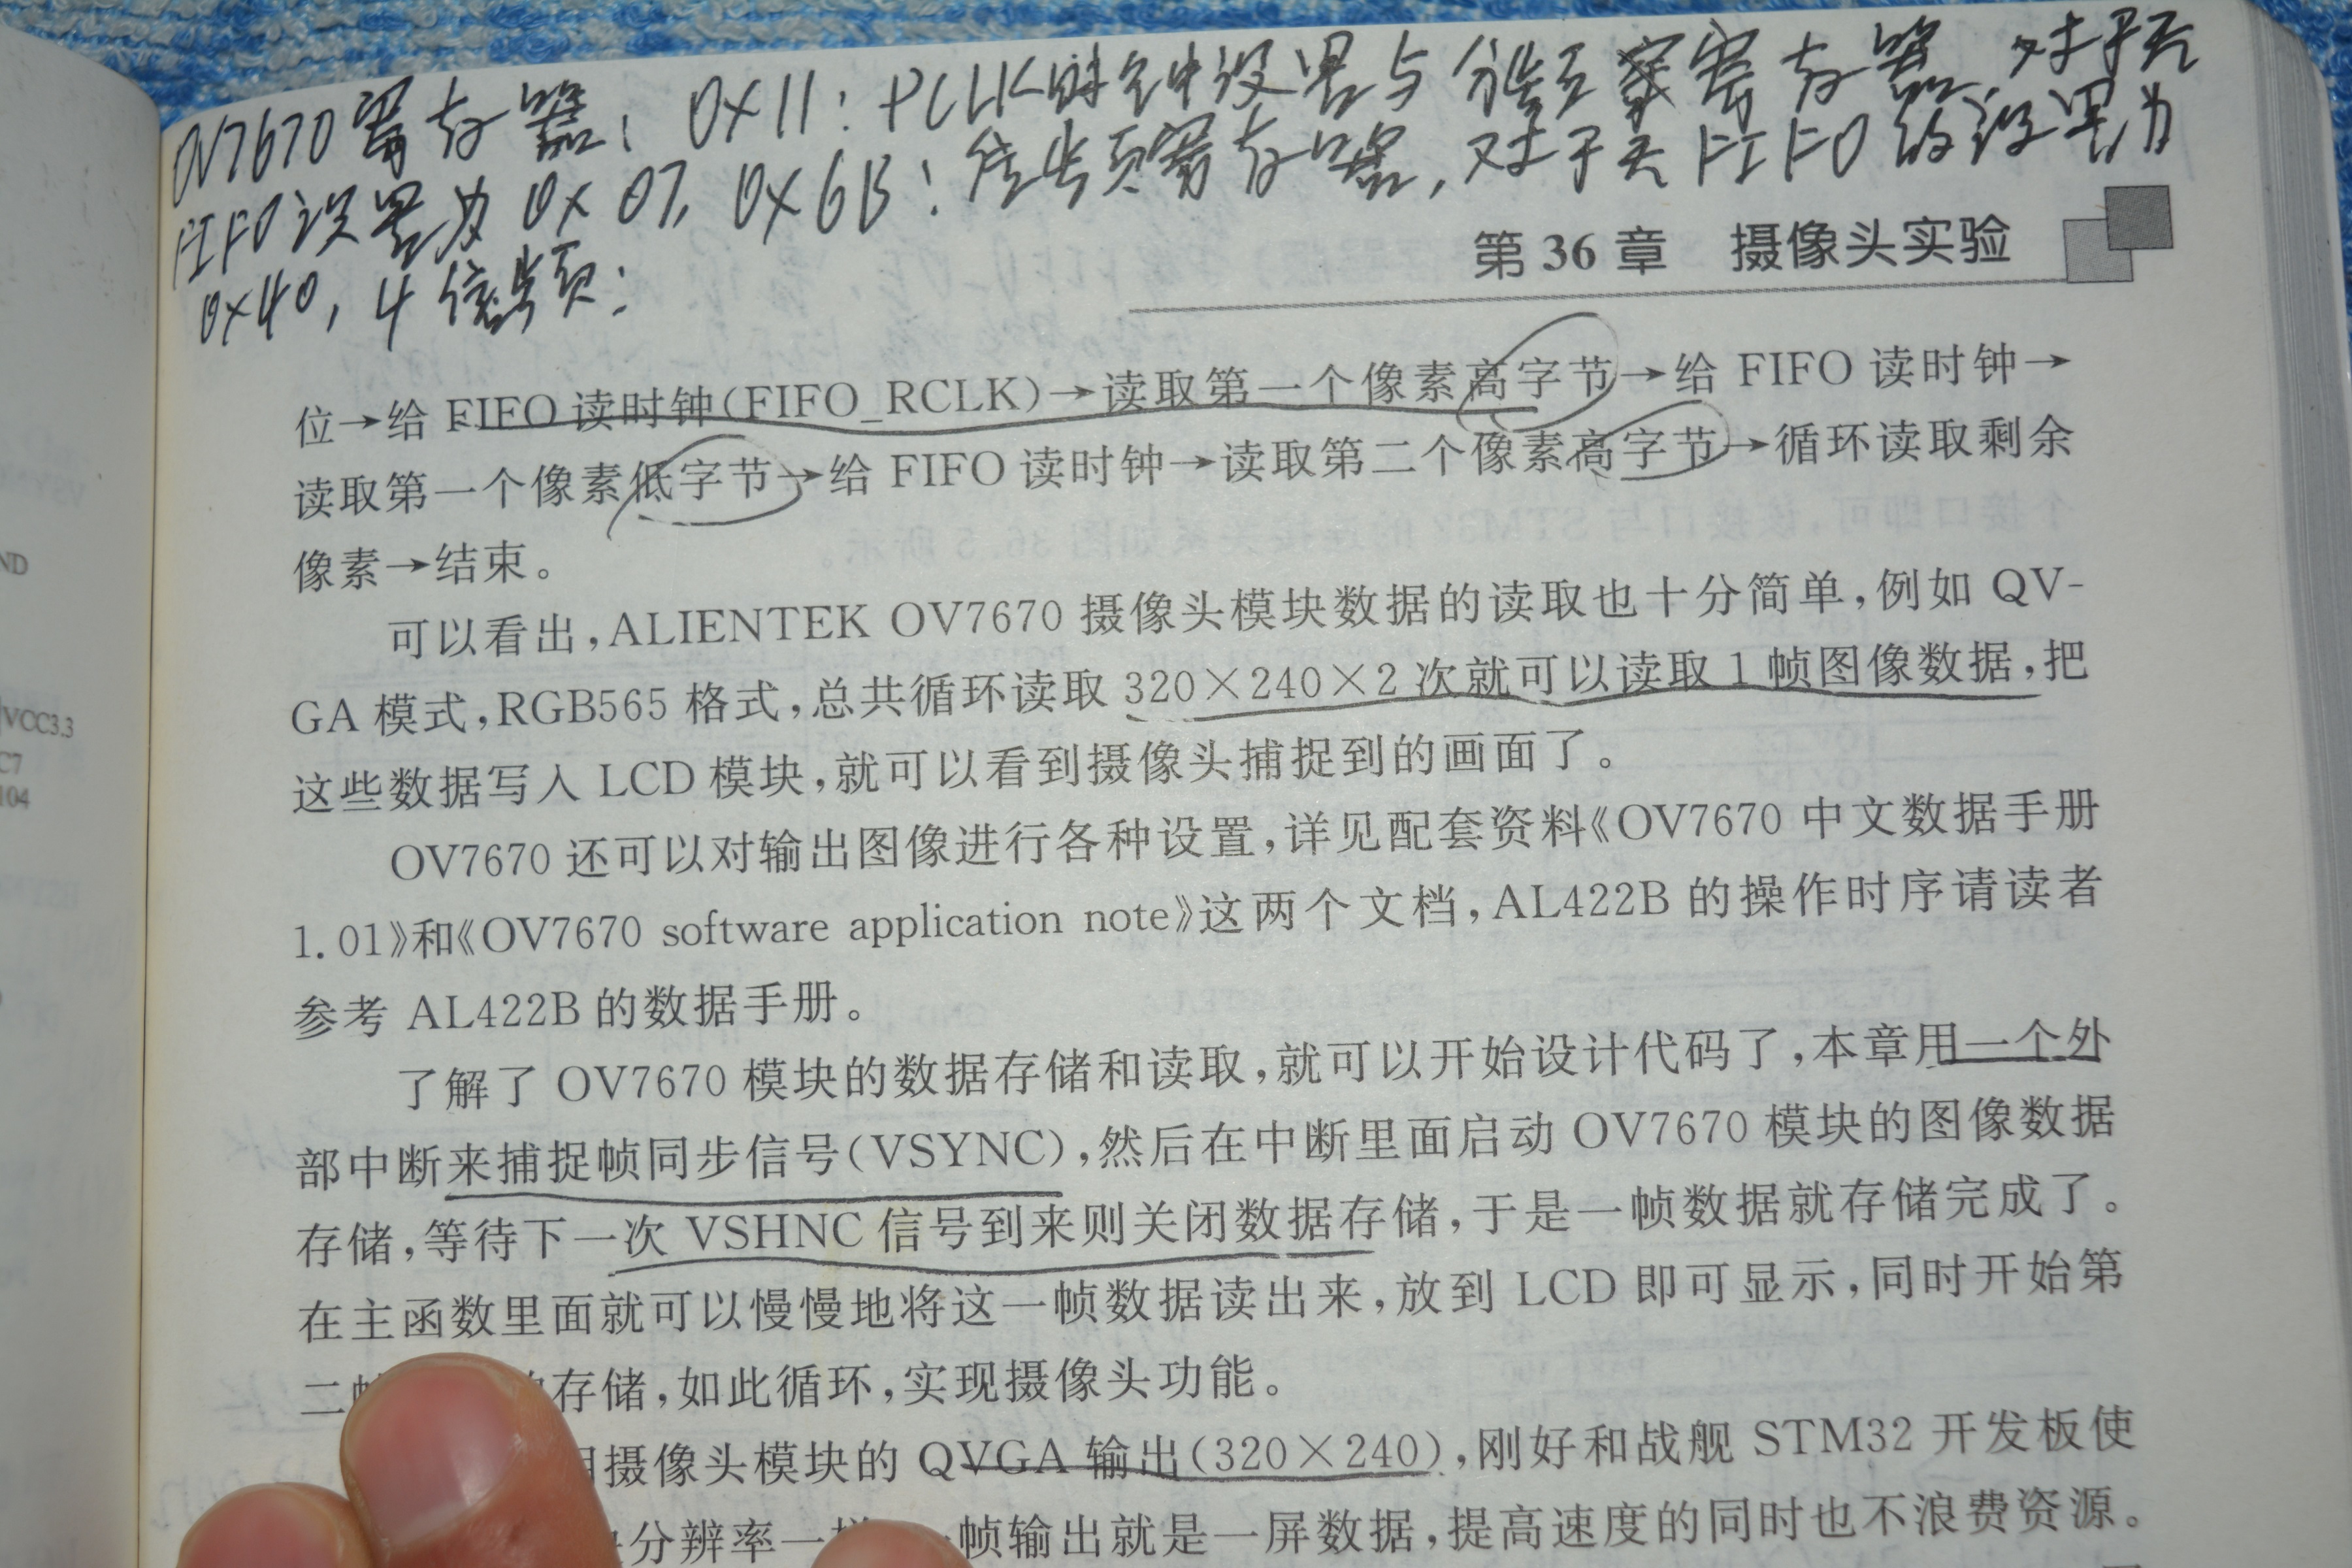 OV7670寄存器: 0x11: PCLK时钟设置与分频寄存器 对于无
FIFO设置为0x07, 0x6B: 倍频寄存器, 对于无FIFO的设置为
0x40, 4倍频;
第36章 摄像头实验
位→给 FIFO 读时钟(FIFO_RCLK)→读取第一个像素高字节→给 FIFO 读时钟→
读取第一个像素低字节→给 FIFO 读时钟→读取第二个像素高字节→循环读取剩余
像素→结束。
可以看出,ALIENTEK OV7670 摄像头模块数据的读取也十分简单,例如 QV-
GA 模式,RGB565 格式,总共循环读取 320×240×2 次就可以读取 1 帧图像数据,把
这些数据写入 LCD 模块,就可以看到摄像头捕捉到的画面了。
OV7670 还可以对输出图像进行各种设置,详见配套资料《OV7670 中文数据手册
1.01》和《OV7670 software application note》这两个文档,AL422B 的操作时序请读者
参考 AL422B 的数据手册。
了解了 OV7670 模块的数据存储和读取,就可以开始设计代码了,本章用一个外
部中断来捕捉帧同步信号(VSYNC),然后在中断里面启动 OV7670 模块的图像数据
存储,等待下一次 VSHNC 信号到来则关闭数据存储,于是一帧数据就存储完成了。
在主函数里面就可以慢慢地将这一帧数据读出来,放到 LCD 即可显示,同时开始第
二 存储,如此循环,实现摄像头功能。
摄像头模块的 QVGA 输出(320×240),刚好和战舰 STM32 开发板使
分辨率一 帧输出就是一屏数据,提高速度的同时也不浪费资源。
ND
VCC3.3
C7
104